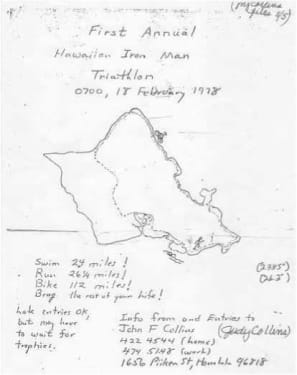 First Annual
Hawaiian Iron Man
Triathlon
0700, 18 February 1978
Swim 2 4 miles!
Run 26 1/4 miles!
Bike 112 miles!
Brag the rest of your life!
Late entries OK,
but may have
to wait for
trophies.
Info from and Entries to
John F Collins
(Judy Collins)
422 4544 (home)
474 5148 (work)
Honolulu 96818